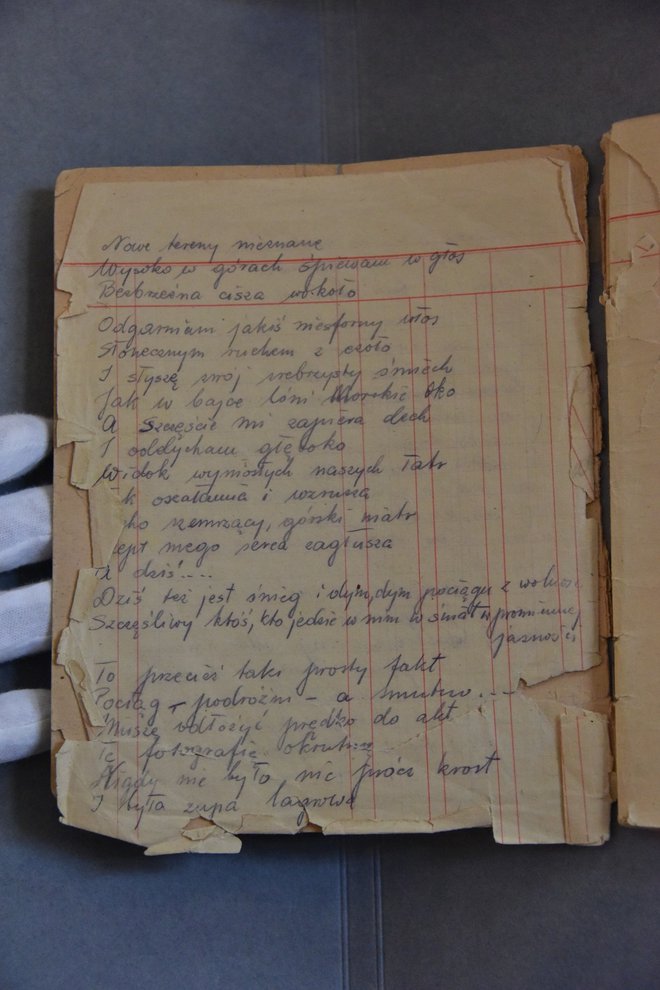 Nowe tereny nieznane
Wysoko w górach śpiewam w głos
Bezbrzeżna cisza wokoło
Odgarniam jakiś niesforny włos
Słonecznym ruchem z czoła
I słyszę swój srebrzysty śmiech
Jak w bajce lśni Morskie Oko
A Szczęście mi zapiera dech
I oddycham głęboko
Widok wyniosłych naszych Tatr
k oszałamia i wzrusza
ko szemrzący, górski wiatr
ept mego serca zagłusza
A dziś....
Dziś też jest śnieg i dym, dym pociągu z
Szczęśliwy ktoś, kto jedzie w nim w świat w promiennej
jasności
To przecież taki prosty fakt
Pociąg - podróżni - a smutno...
Muszę odłożyć prędko do akt
Tę fotografię okrutną
Nigdy nic było nic prócz krost
I była zupa lagrowa